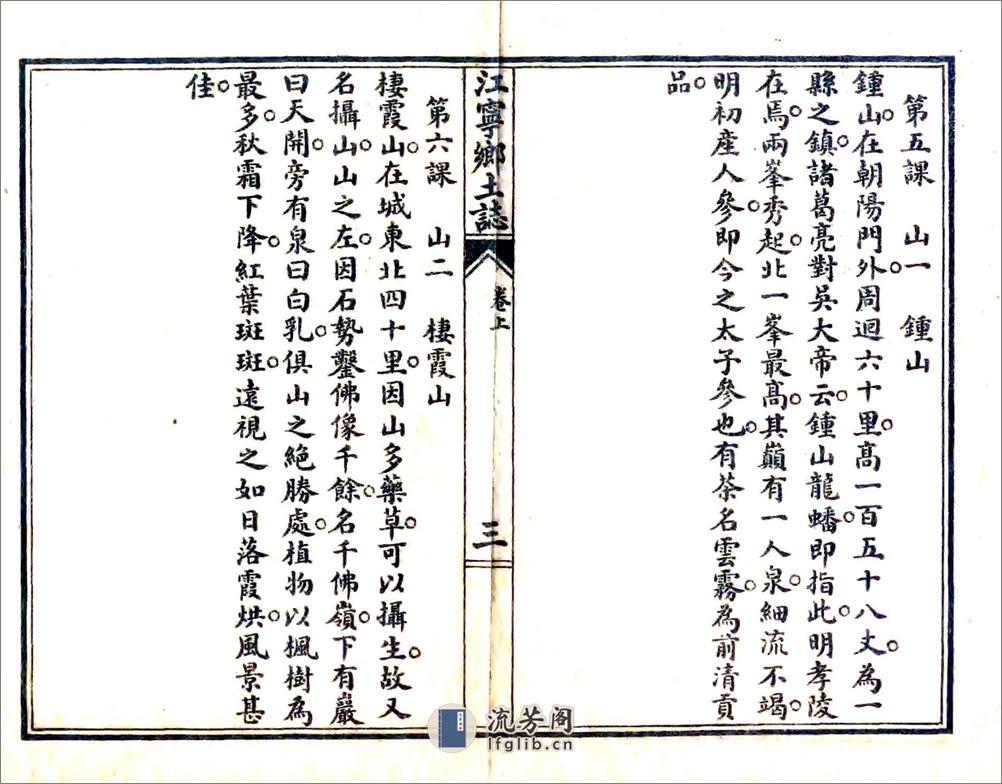 第五課　山一　鍾山
鍾山。在朝陽門外。周迴六十里。高一百五十八丈。為一
縣之鎮。諸葛亮對吳大帝云。鍾山龍蟠。即指此。明孝陵
在焉。兩峯秀起。北一峯最高。其巔有一人泉。細流不竭。
明初產人參。即今之太子參也。有茶名雲霧。為前清貢
品。
江寧鄉土誌
卷上
三
第六課　山二　棲霞山
棲霞山。在城東北四十里。因山多藥草。可以攝生。故又
名攝山。山之左。因石勢鑿佛像千餘。名千佛嶺。下有巖
曰天開。旁有泉曰白乳。俱山之絕勝處。植物以楓樹為
最多。秋霜下降。紅葉斑斑。遠視之如日落霞烘。風景甚
佳。
流芳阁
lfglib.cn